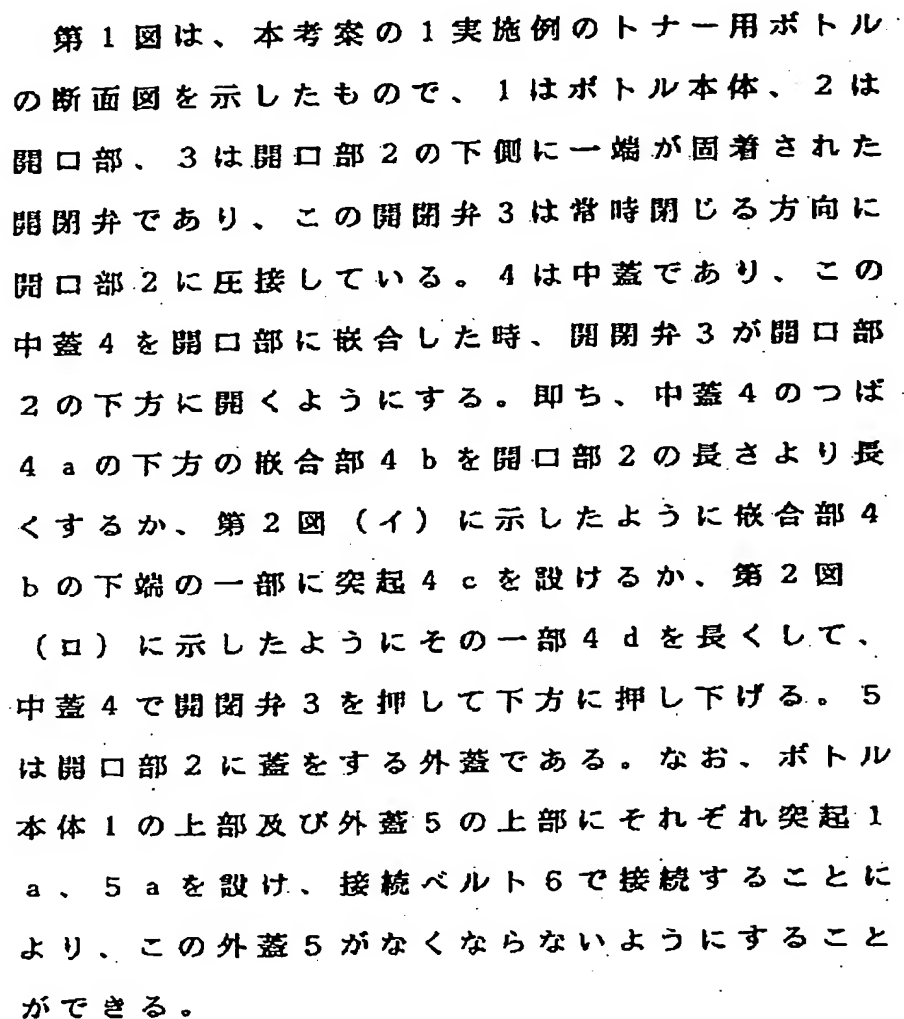 第1図は、本考案の1実施例のトナー用ボトル
の断面図を示したもので、1はボトル本体、2は
開口部、3は開口部2の下側に一端が固着された
開閉弁であり、この開閉弁3は常時閉じる方向に
開口部2に圧接している。4は中蓋であり、この
中蓋4を開口部に嵌合した時、開閉弁3が開口部
2の下方に開くようにする。即ち、中蓋4のつば
4aの下方の嵌合部4bを開口部2の長さより長
くするか、第2図(イ)に示したように嵌合部4
bの下端の一部に突起4cを設けるか、第2図
(ロ)に示したようにその一部4dを長くして、
中蓋4で開閉弁3を押して下方に押し下げる。5
は開口部2に蓋をする外蓋である。なお、ボトル
本体1の上部及び外蓋5の上部にそれぞれ突起1
a、5aを設け、接続ベルト6で接続することに
より、この外蓋5がなくならないようにすること
ができる。